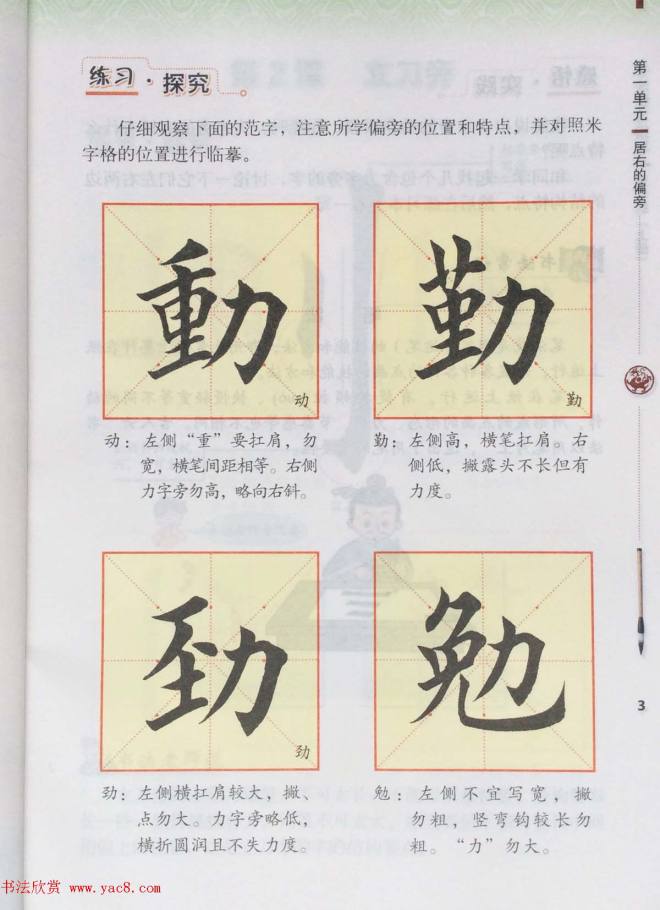 练习·探究
仔细观察下面的范字，注意所学偏旁的位置和特点，并对照米
字格的位置进行临摹。
第一单元
居右的偏旁
動
动
勤
勤
动：左侧“重”要扛肩，勿
宽，横笔间距相等。右侧
力字旁勿高，略向右斜。
勤：左侧高，横笔扛肩。右
侧低，撇露头不长但有
力度。
劲
勉
劲：左侧横扛肩较大，撇、
点勿大。力字旁略低，
横折圆润且不失力度。
勉：左侧不宜写宽，撇
勿粗，竖弯钩较长勿
粗。“力”勿大。
3
书法欣赏 www.yac8.com